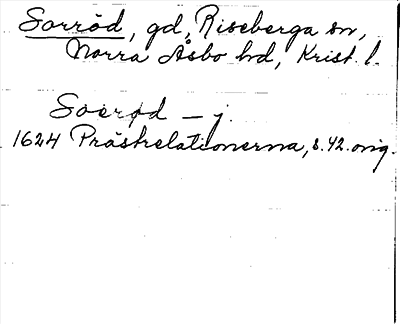 Sorröd, gd, Riseberga sn,
Norra Åsbo hd, Krist. l.
Soerød – j.
1624 Prästrelationerna, s. 42. orig.